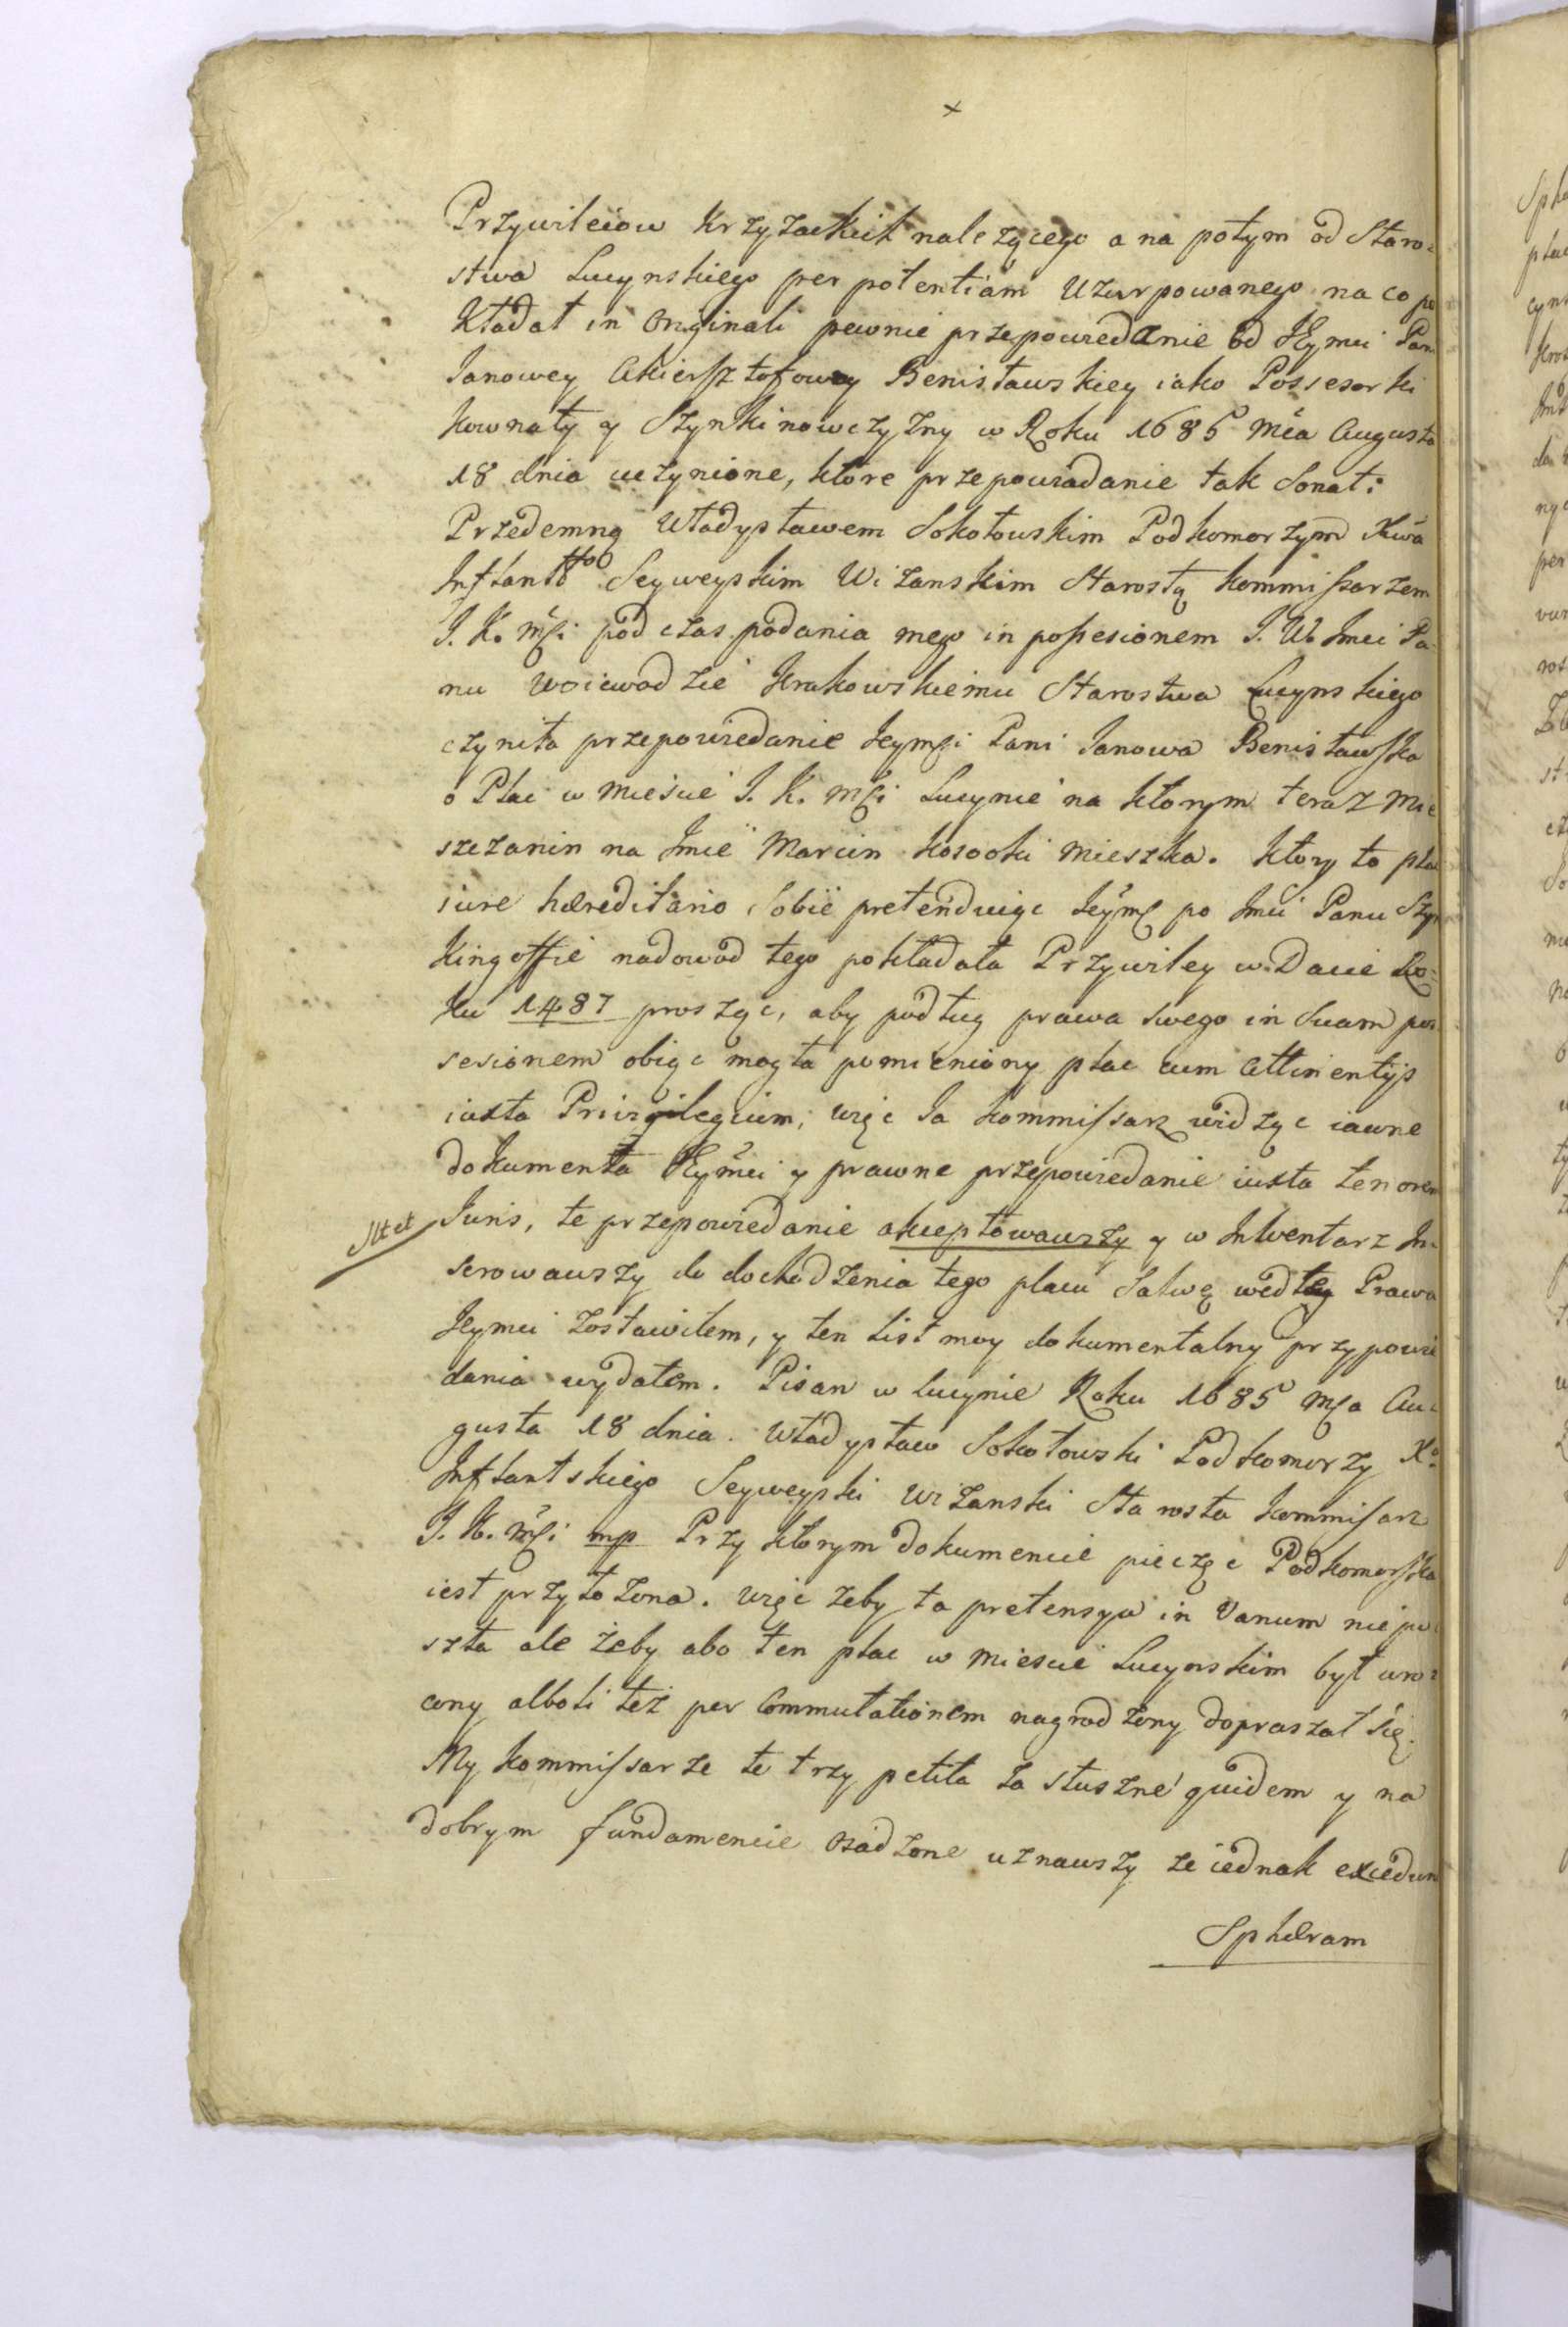 x
Przywileiow Krzyzackich należącego a na potym od Staro=
stwa Lucynskiego per potentiam uzurpowanego na co po
kładał in originali pewnie przepowiedanie od JEymci Pani
Janowey Akiersztofowey Benisławskiey iako Possesorki
Kownaty y Szynkinowczyzny w Roku 1685 mca Augusta
18 dnia uczynione, ktore przepowiadanie tak Sonat:
Przedemną Władysławem Sokołowskim Podkomorzym Xwa
Inflantgo Seyweyskim Wizanskim Starostą kommissarzem
J. K. Mści podczas podania mego in possesionem J. W. Jmci Pa-
nu Woiewodzie Krakowskiemu Starostwa Lucynskiego
czyniła przepowiedanie Jeymści Pani Janowa Benisławska
o Plac w mieście J. K. Mści Lucynie na ktorym teraz mie
szczanin na Jmie Marcin Kosooki mieszka. Ktory to plac
iure hæreditario Sobie pretenduiąc Jeymć po Jmci Panu Szyn
kingoffie na dowod tego pokładała Przywiley w Dacie Ro=
ku 1487 prosząc, aby podług prawa swego in Suam pos
sesionem obiąc mogła pomieniony plac cum Attinentijs
iuxta Privilegium, więc Ja Kommissarz widząc iawne
dokumenta JEymci y prawne przepowiedanie iuxta tenorem
Juris, te przepowiedanie akceptowawszy y w Inwentarz In-
serowawszy do dochodzenia tego placu Salwę według Prawa
JEymci zostawiłem, y ten list moy dokumentalny przypowie
dania wydałem. Pisan w Lucynie Roku 1685 Mca Au=
gusta 18 dnia. Władysław Sokołowski Podkomorzy X.
Inflantskiego Seyweyski Wizanski Starosta Kommisarz
J. K. Mści mp Przy ktorym dokumencie pieczęc Podkomorska
iest przyłożona. Więc żeby ta pretensya in Vanum nie po
szła ale żeby abo ten plac w miescie Lucynskim był wro=
cony alboli też per Commutationem nagrodzony dopraszał się.
My Kommissarze te trzy petita za słuszne quidem y na
dobrym fundamencie osadzone uznawszy że iednak excedunt
Sphæram